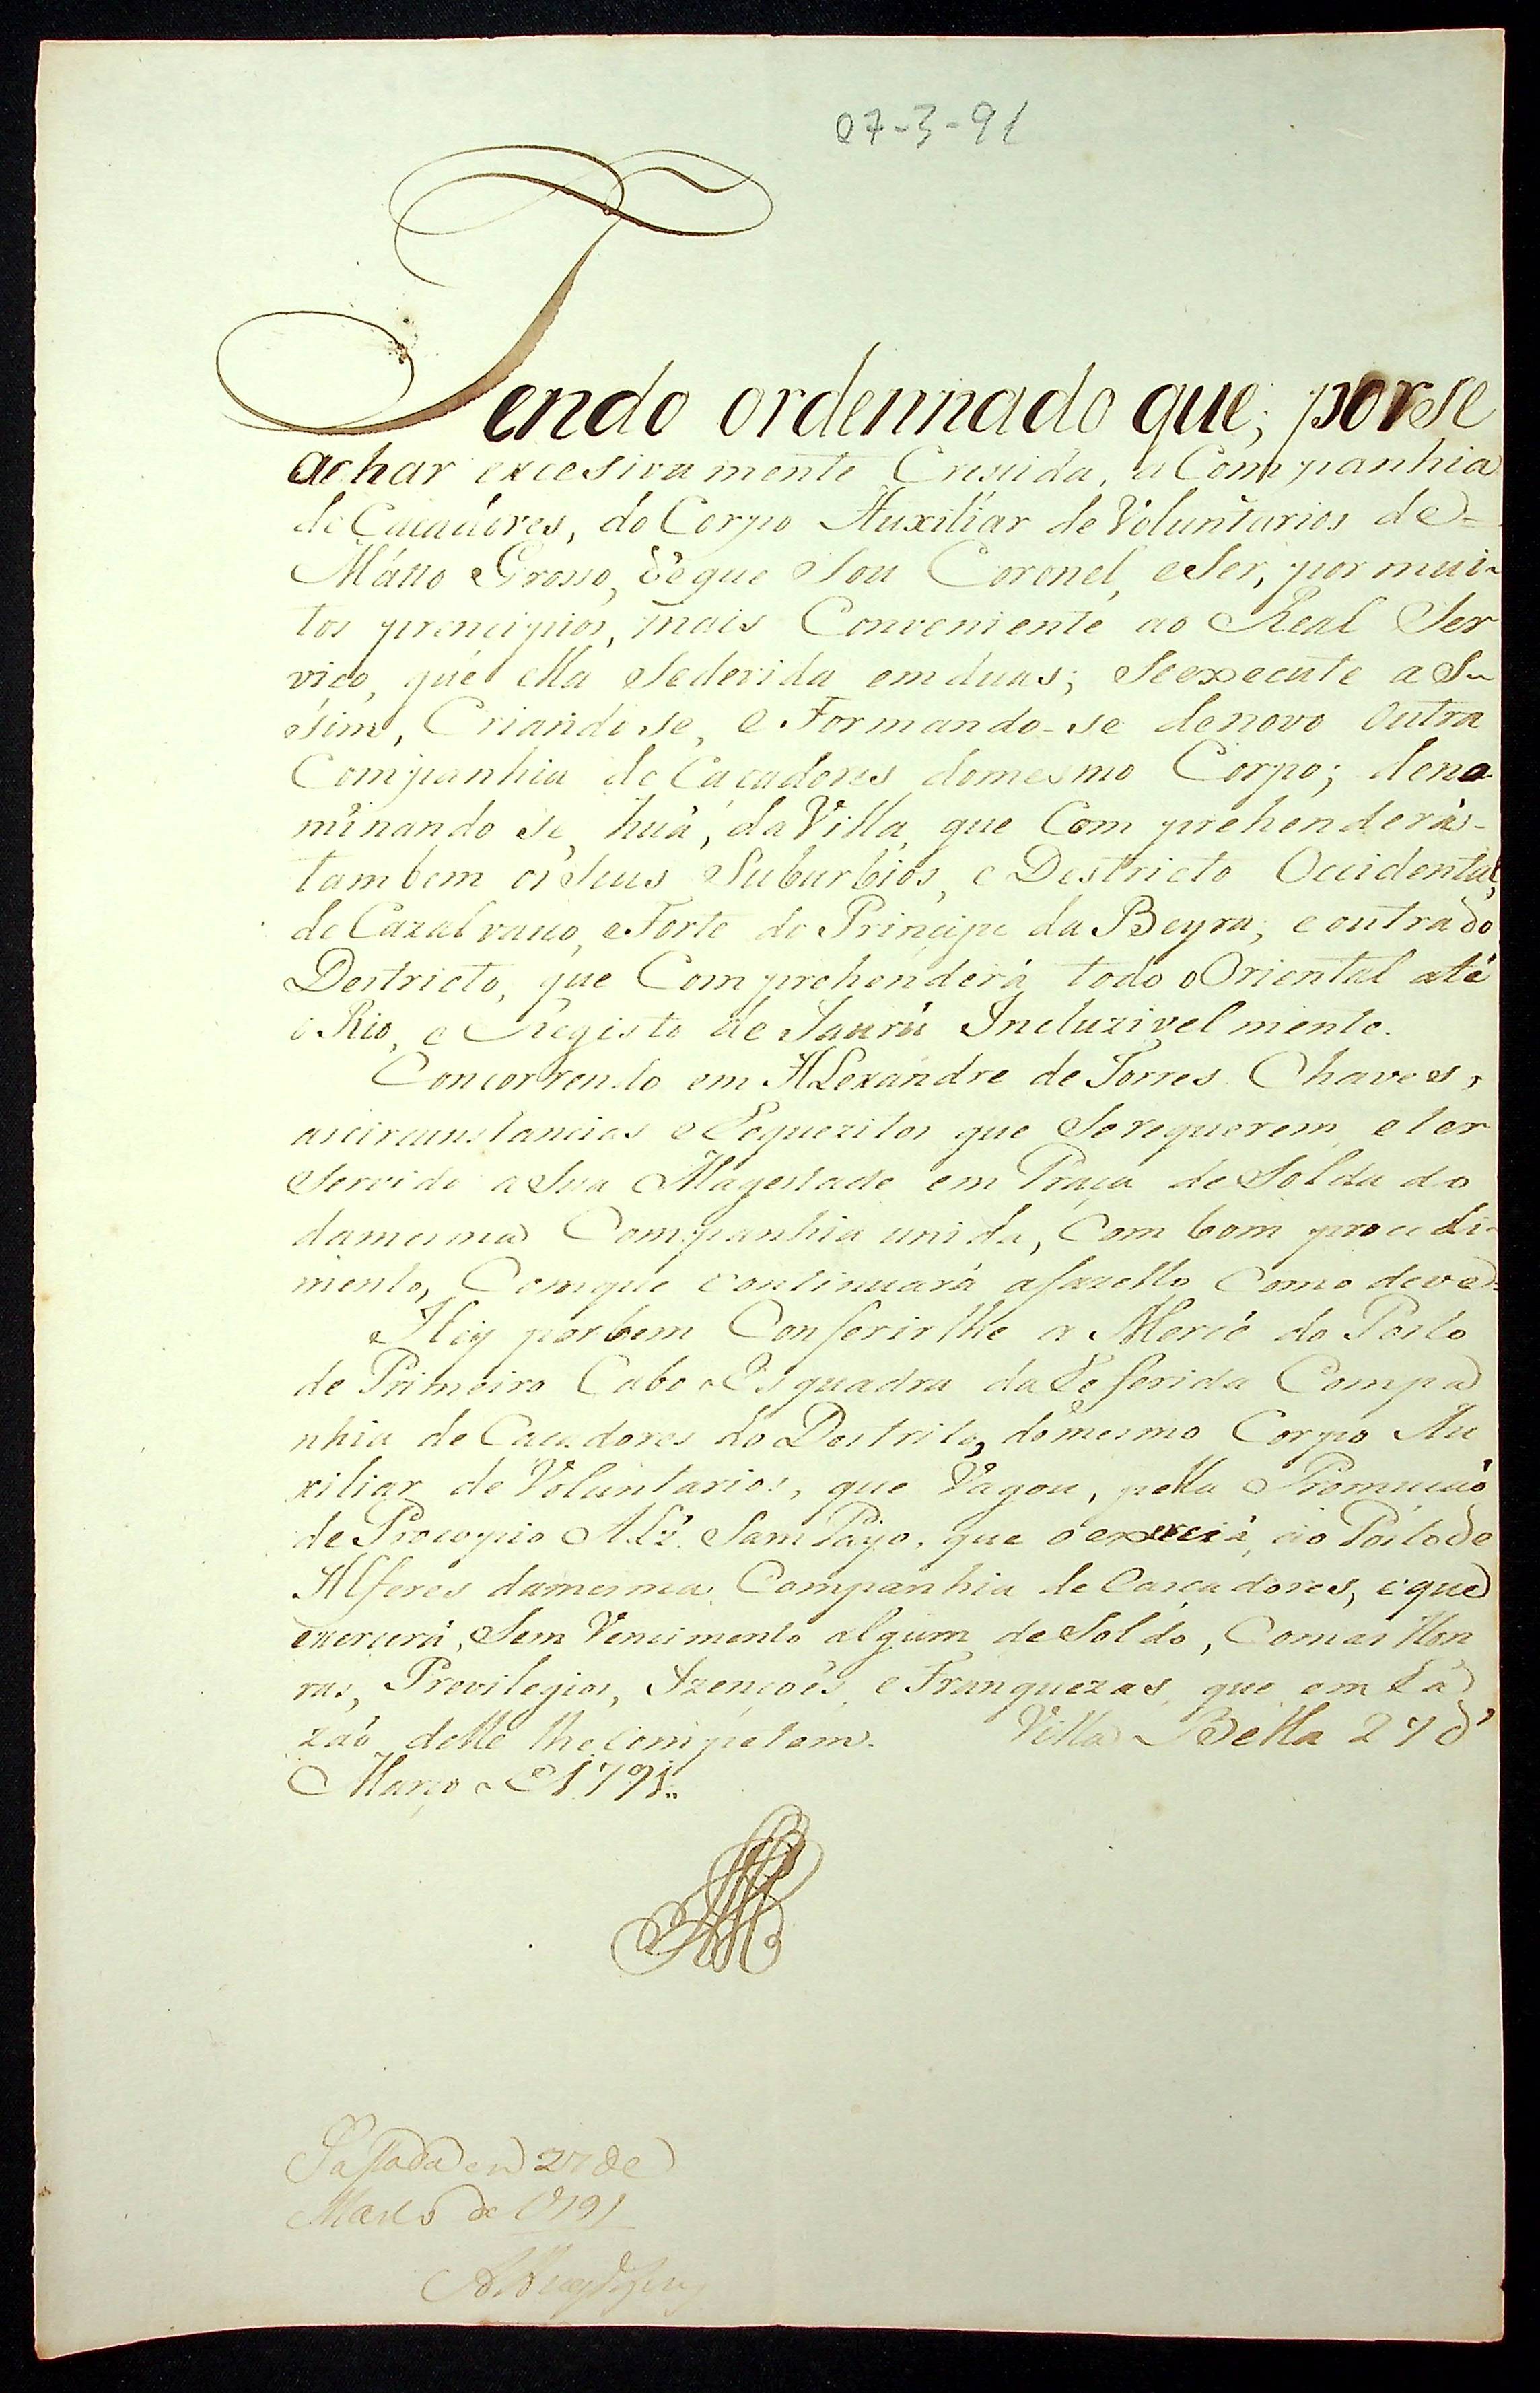 27-3-91
Tendo ordennado que, por se
achar excesivamente Crescida, a Companhia
de Cacadores, do Corpo Auxiliar de Voluntarios de=
Mátto Grosso, de que Sou Coronel, e Ser, por mui-
tos prencipios, mais Conveniente ao Real Ser
viço, que ella Se devida em duas; Se execute a S-
sim, Criando se, e Formando-se de novo Outra
Companhia de Cacadores do mesmo Corpo; deno
minando se, huã, da Villa, que Comprehenderá-
tambem os Seus Suburbios, e Destricto Occidental,
de Cazalvasco, e Forte do Principe da Beyra; e outra do
Destricto, que Comprehenderá todo o Oriental até
o Rio, e Registo de Jaurú Incluzivelmente.
Concorrendo em Alexandre de Torres Chaves,
as circunstancias e Requezitos que Se requerem e ter
Servido a Sua Magestade em Praça de Soldado
da mesma Companhia unida, Com bom procedi-
mento, Com que continuará a fazello Como deve.
Hey por bem Conferirlhe a Mercê do Posto
de Primeiro Cabo Esquadra da Referida Compa
nhia de Cacadores do Destrito, do mesmo Corpo Au
xiliar de Voluntarios, que Vagou, pella Promução
de Procopio Alz. Sam Payo, que o exercia, ao Posto de
Alferes da mesma Companhia de Casçadores, e que
exercerá, Sem Vencimento algum de Soldo, Com as Hon
ras, Previlegios, Izençoês, e Franquezas, que em Ra
zaõ delle lhe Competem. Villa Bella 27 d'
Março 1791.
Passada em 27 de
Março de 1791